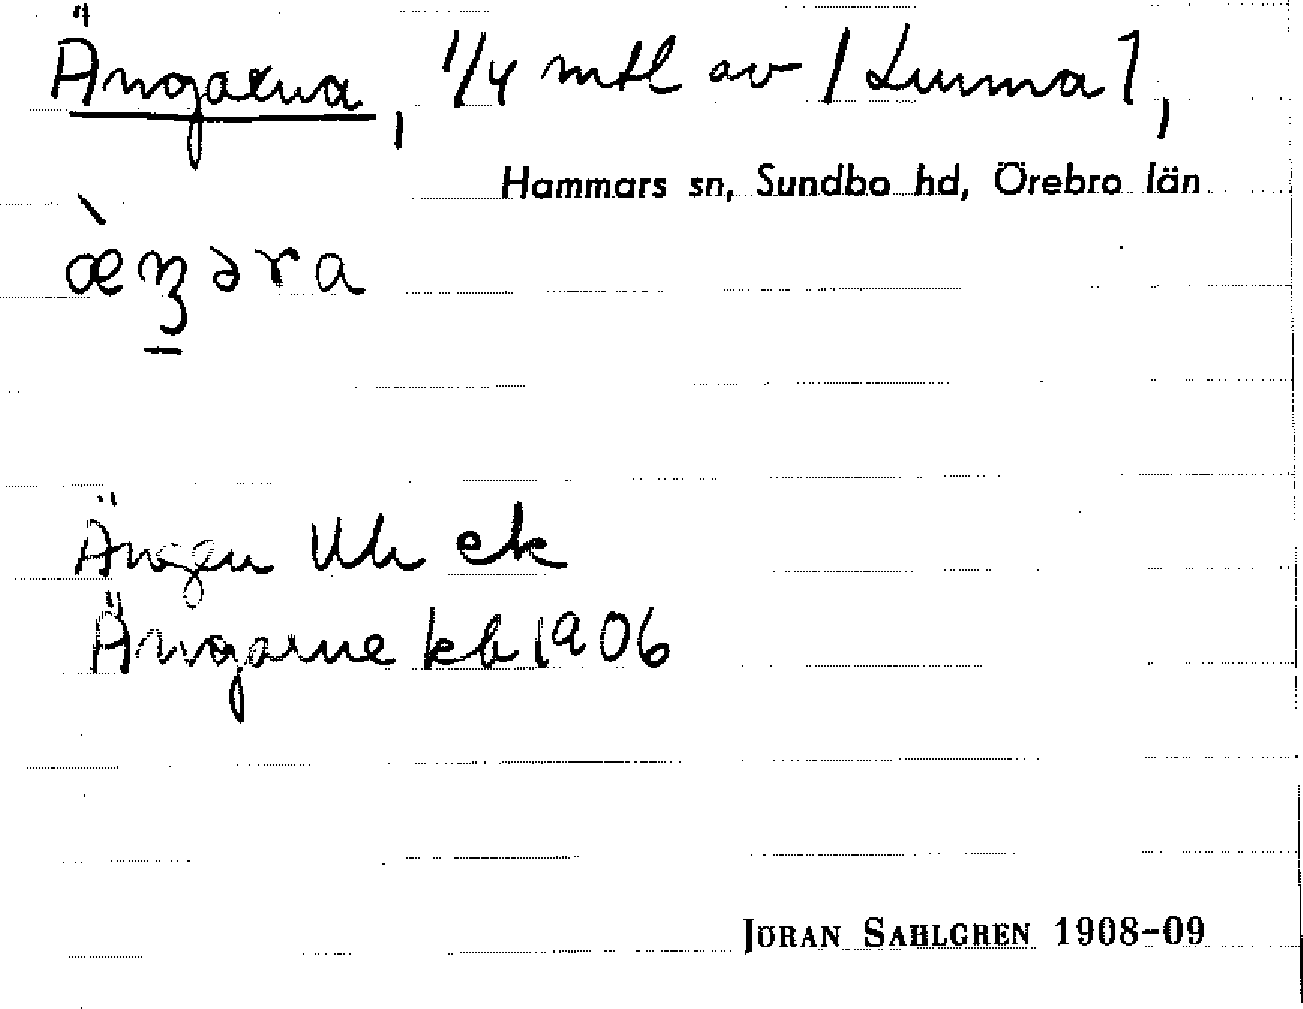 Ängarna, 1/4 mtl av / Lunna 1,
Hammars sn, Sundbo hd, Örebro län
Ängen Uh ek
Ängarne kb 1906
JÖRAN SAHLGREN 1908-09